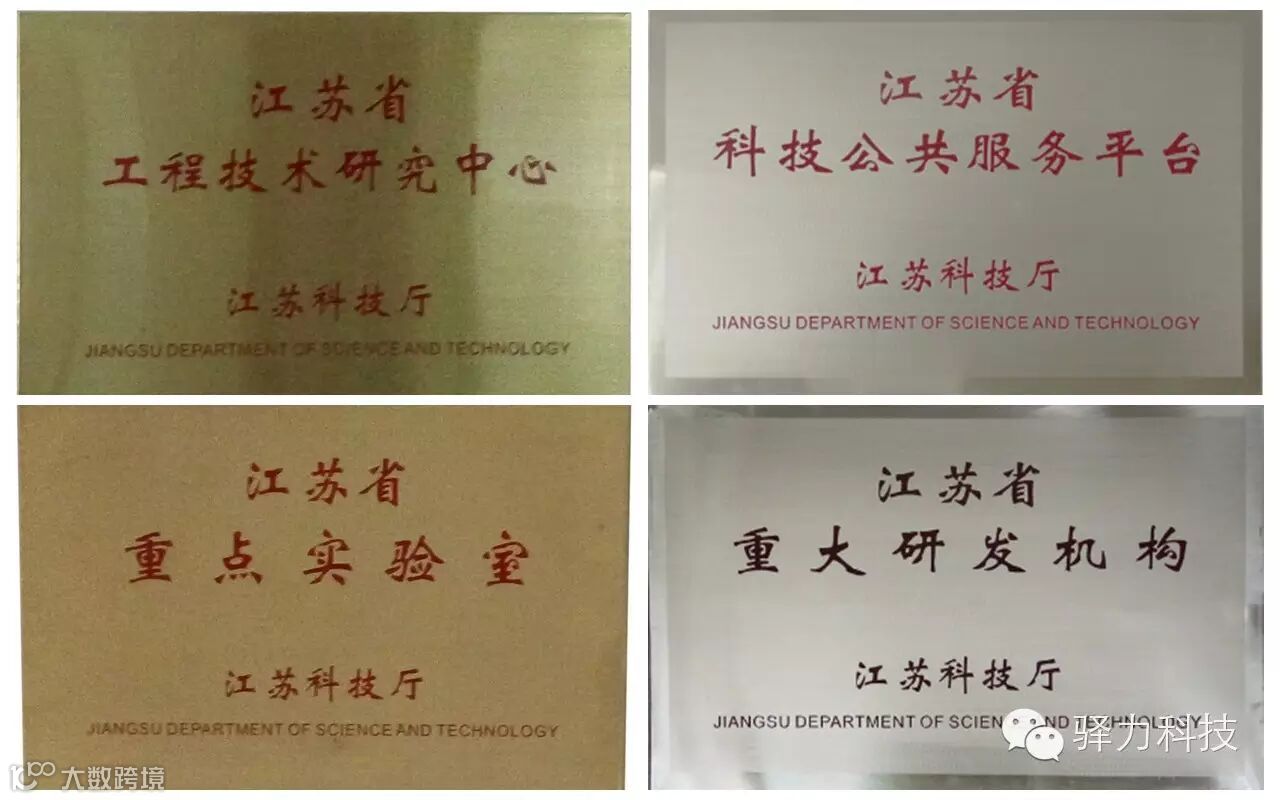 江苏省
工程技术研究中心
江苏科技厅
JIANGSU DEPARTMENT OF SCIENCE AND TECHNOLOGY
江苏省
科技公共服务平台
江苏科技厅
JIANGSU DEPARTMENT OF SCIENCE AND TECHNOLOGY
江苏省
重点实验室
江苏科技厅
JIANGSU DEPARTMENT OF SCIENCE AND TECHNOLOGY
大数跨境
江苏省
重大研发机构
江苏科技厅
JIANGSU DEPARTMENT OF SCIENCE AND TECHNOLOGY
驿力科技